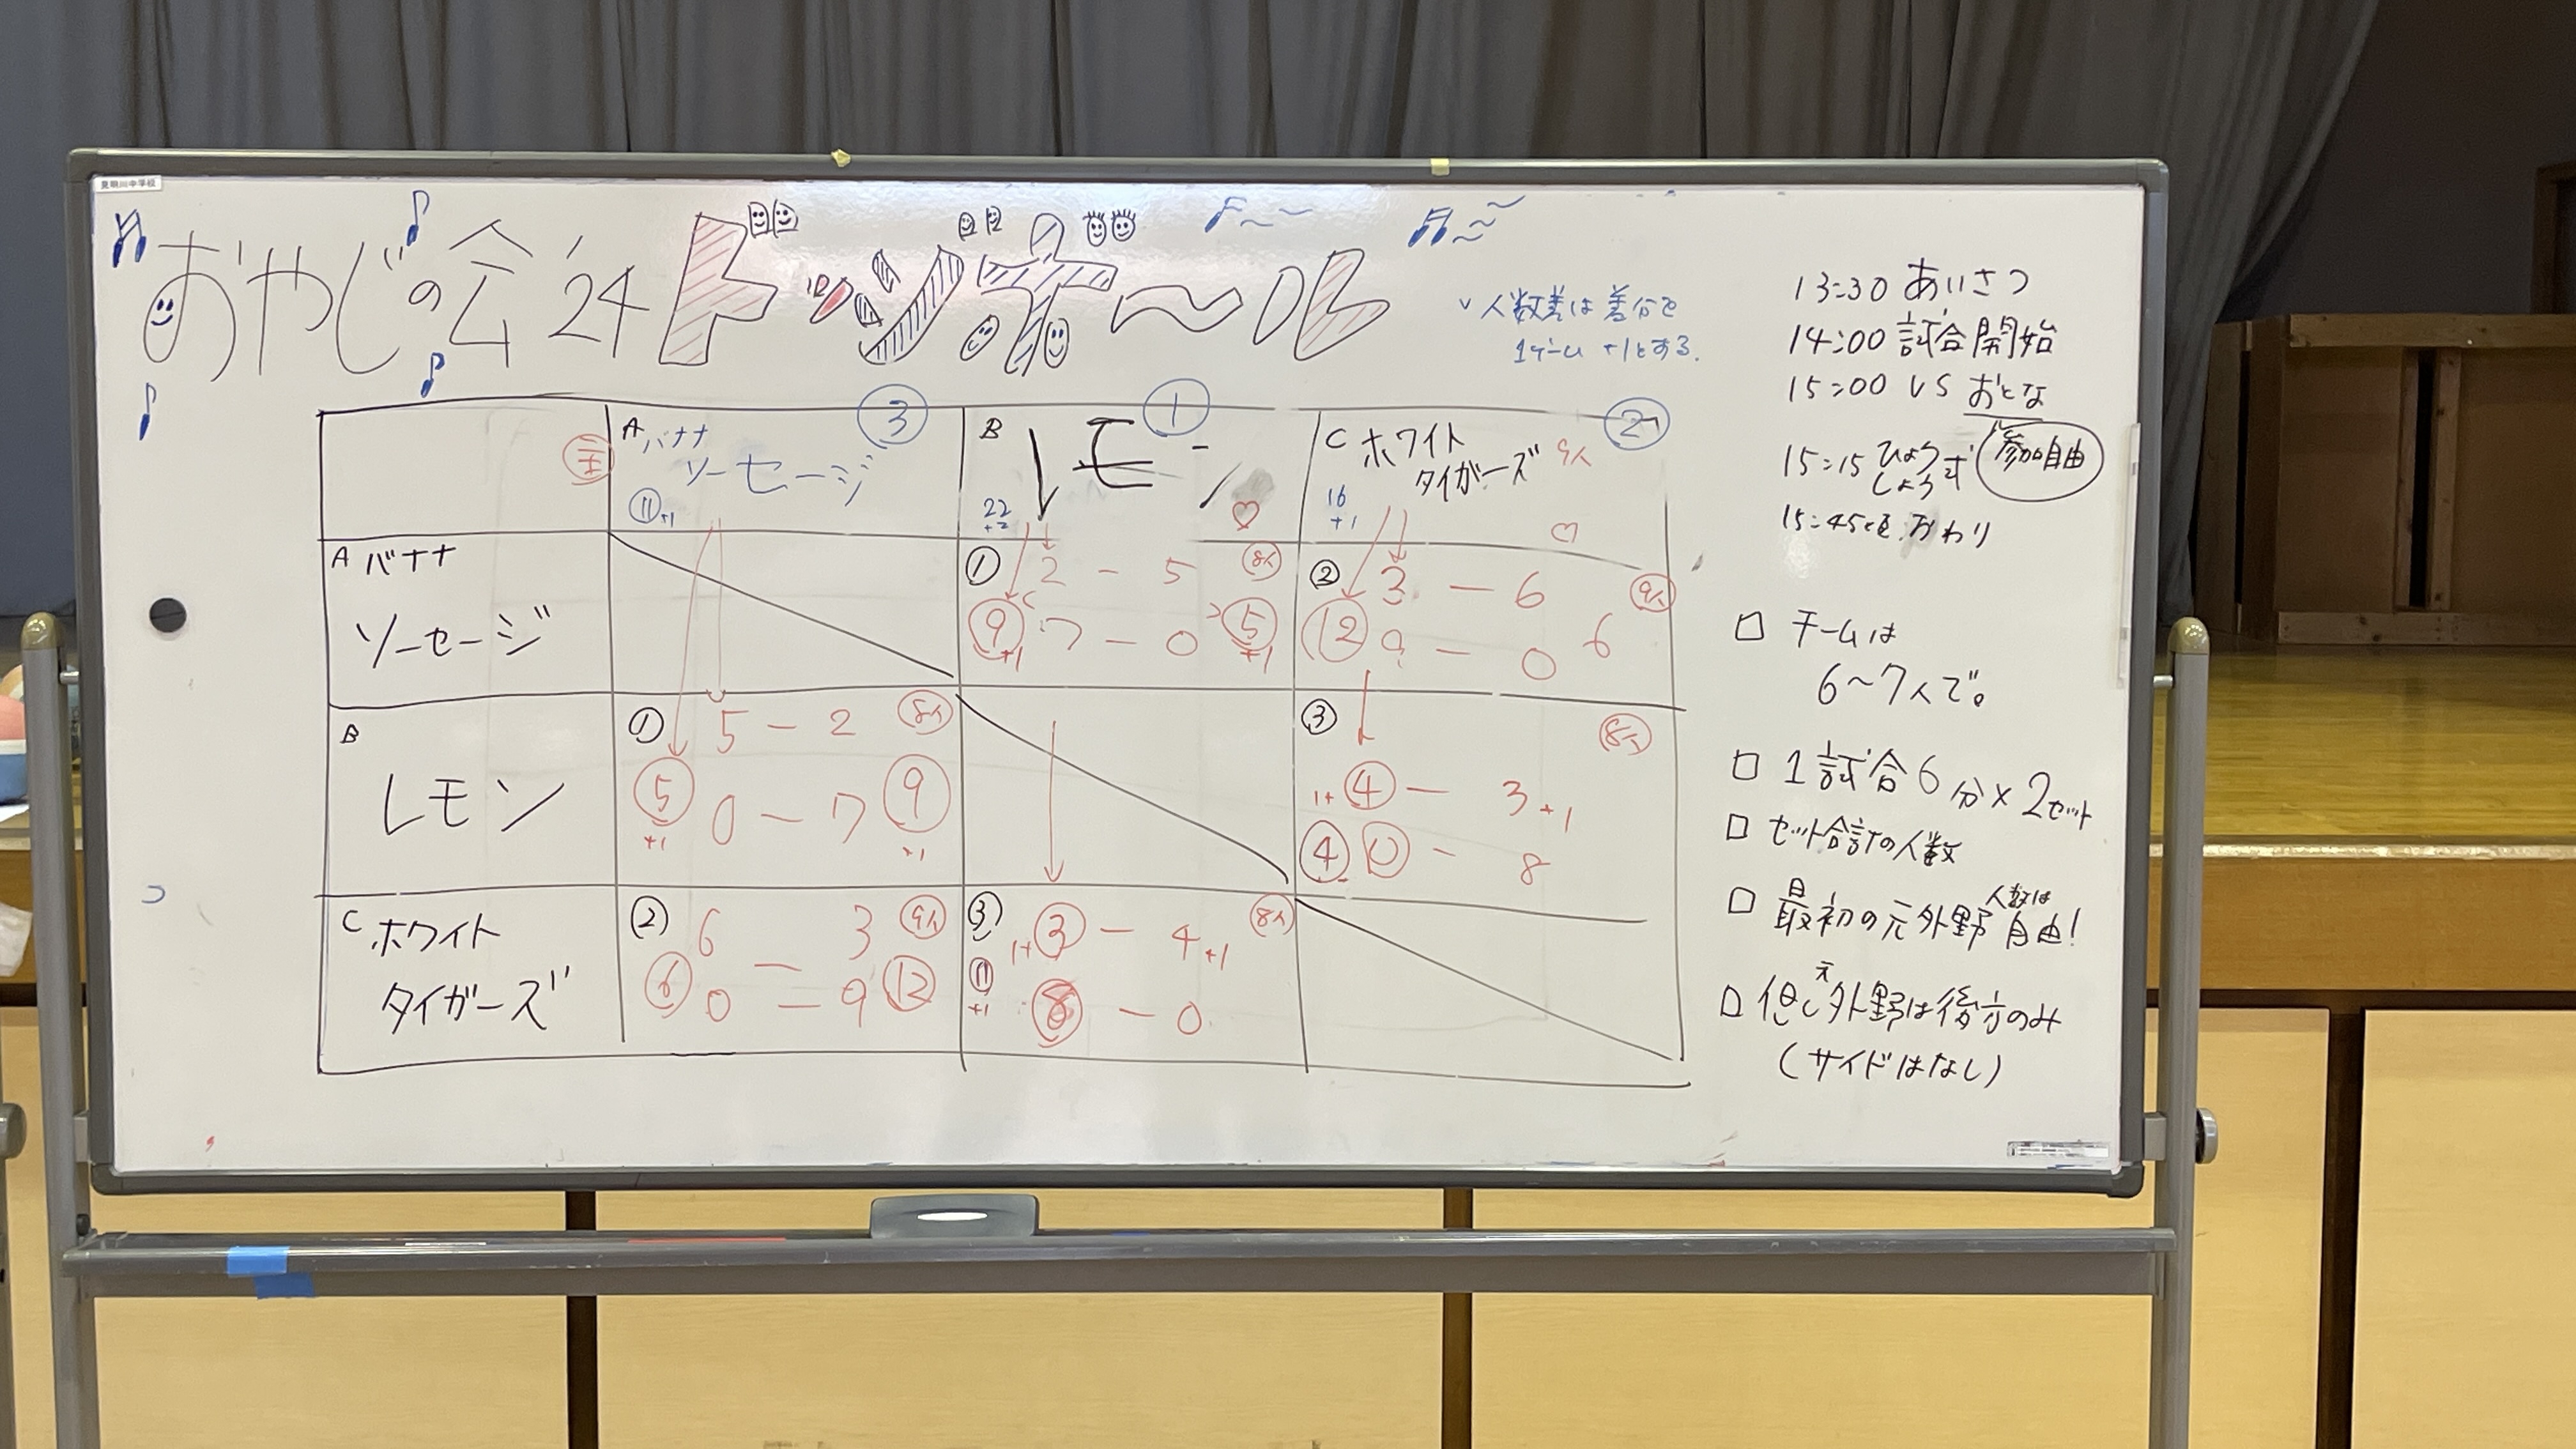 見明川中学校
おやじの会 '24 ドッヂボ〜ル
v 人数差は差分を
1ゲーム +1とする.
13:30 あいさつ
14:00 試合開始
15:00 VS おとな
参加自由
15:15 ひょうしょう式
15:45頃 おわり
主
A バナナ
ソーセージ
③
⑪+1
B レモン
①
22
+2
C ホワイト
タイガーズ
9人
②
16
+1
A バナナ
ソーセージ
① 2 - 5 8人
⑨ 7 - 0 ⑤
+1 +1
② 3 - 6 9人
⑫ 9 - 0 6
B
レモン
① 5 - 2 8人
⑤ 0 - 7 ⑨
+1 +1
③ 8人
1+ ④ - 3 +1
④ 0 - 8
C ホワイト
タイガーズ
② 6 - 3 9人
⑥ 0 - 9 ⑫
③ 1+ ③ - 4 +1 8人
⑪
+1
⑧ - 0
□ チームは
6〜7人で。
□ 1試合6分×2セット
□ セット合計の人数
□ 最初の元外野人数は自由!
□ 但し元外野は後方のみ
(サイドはなし)